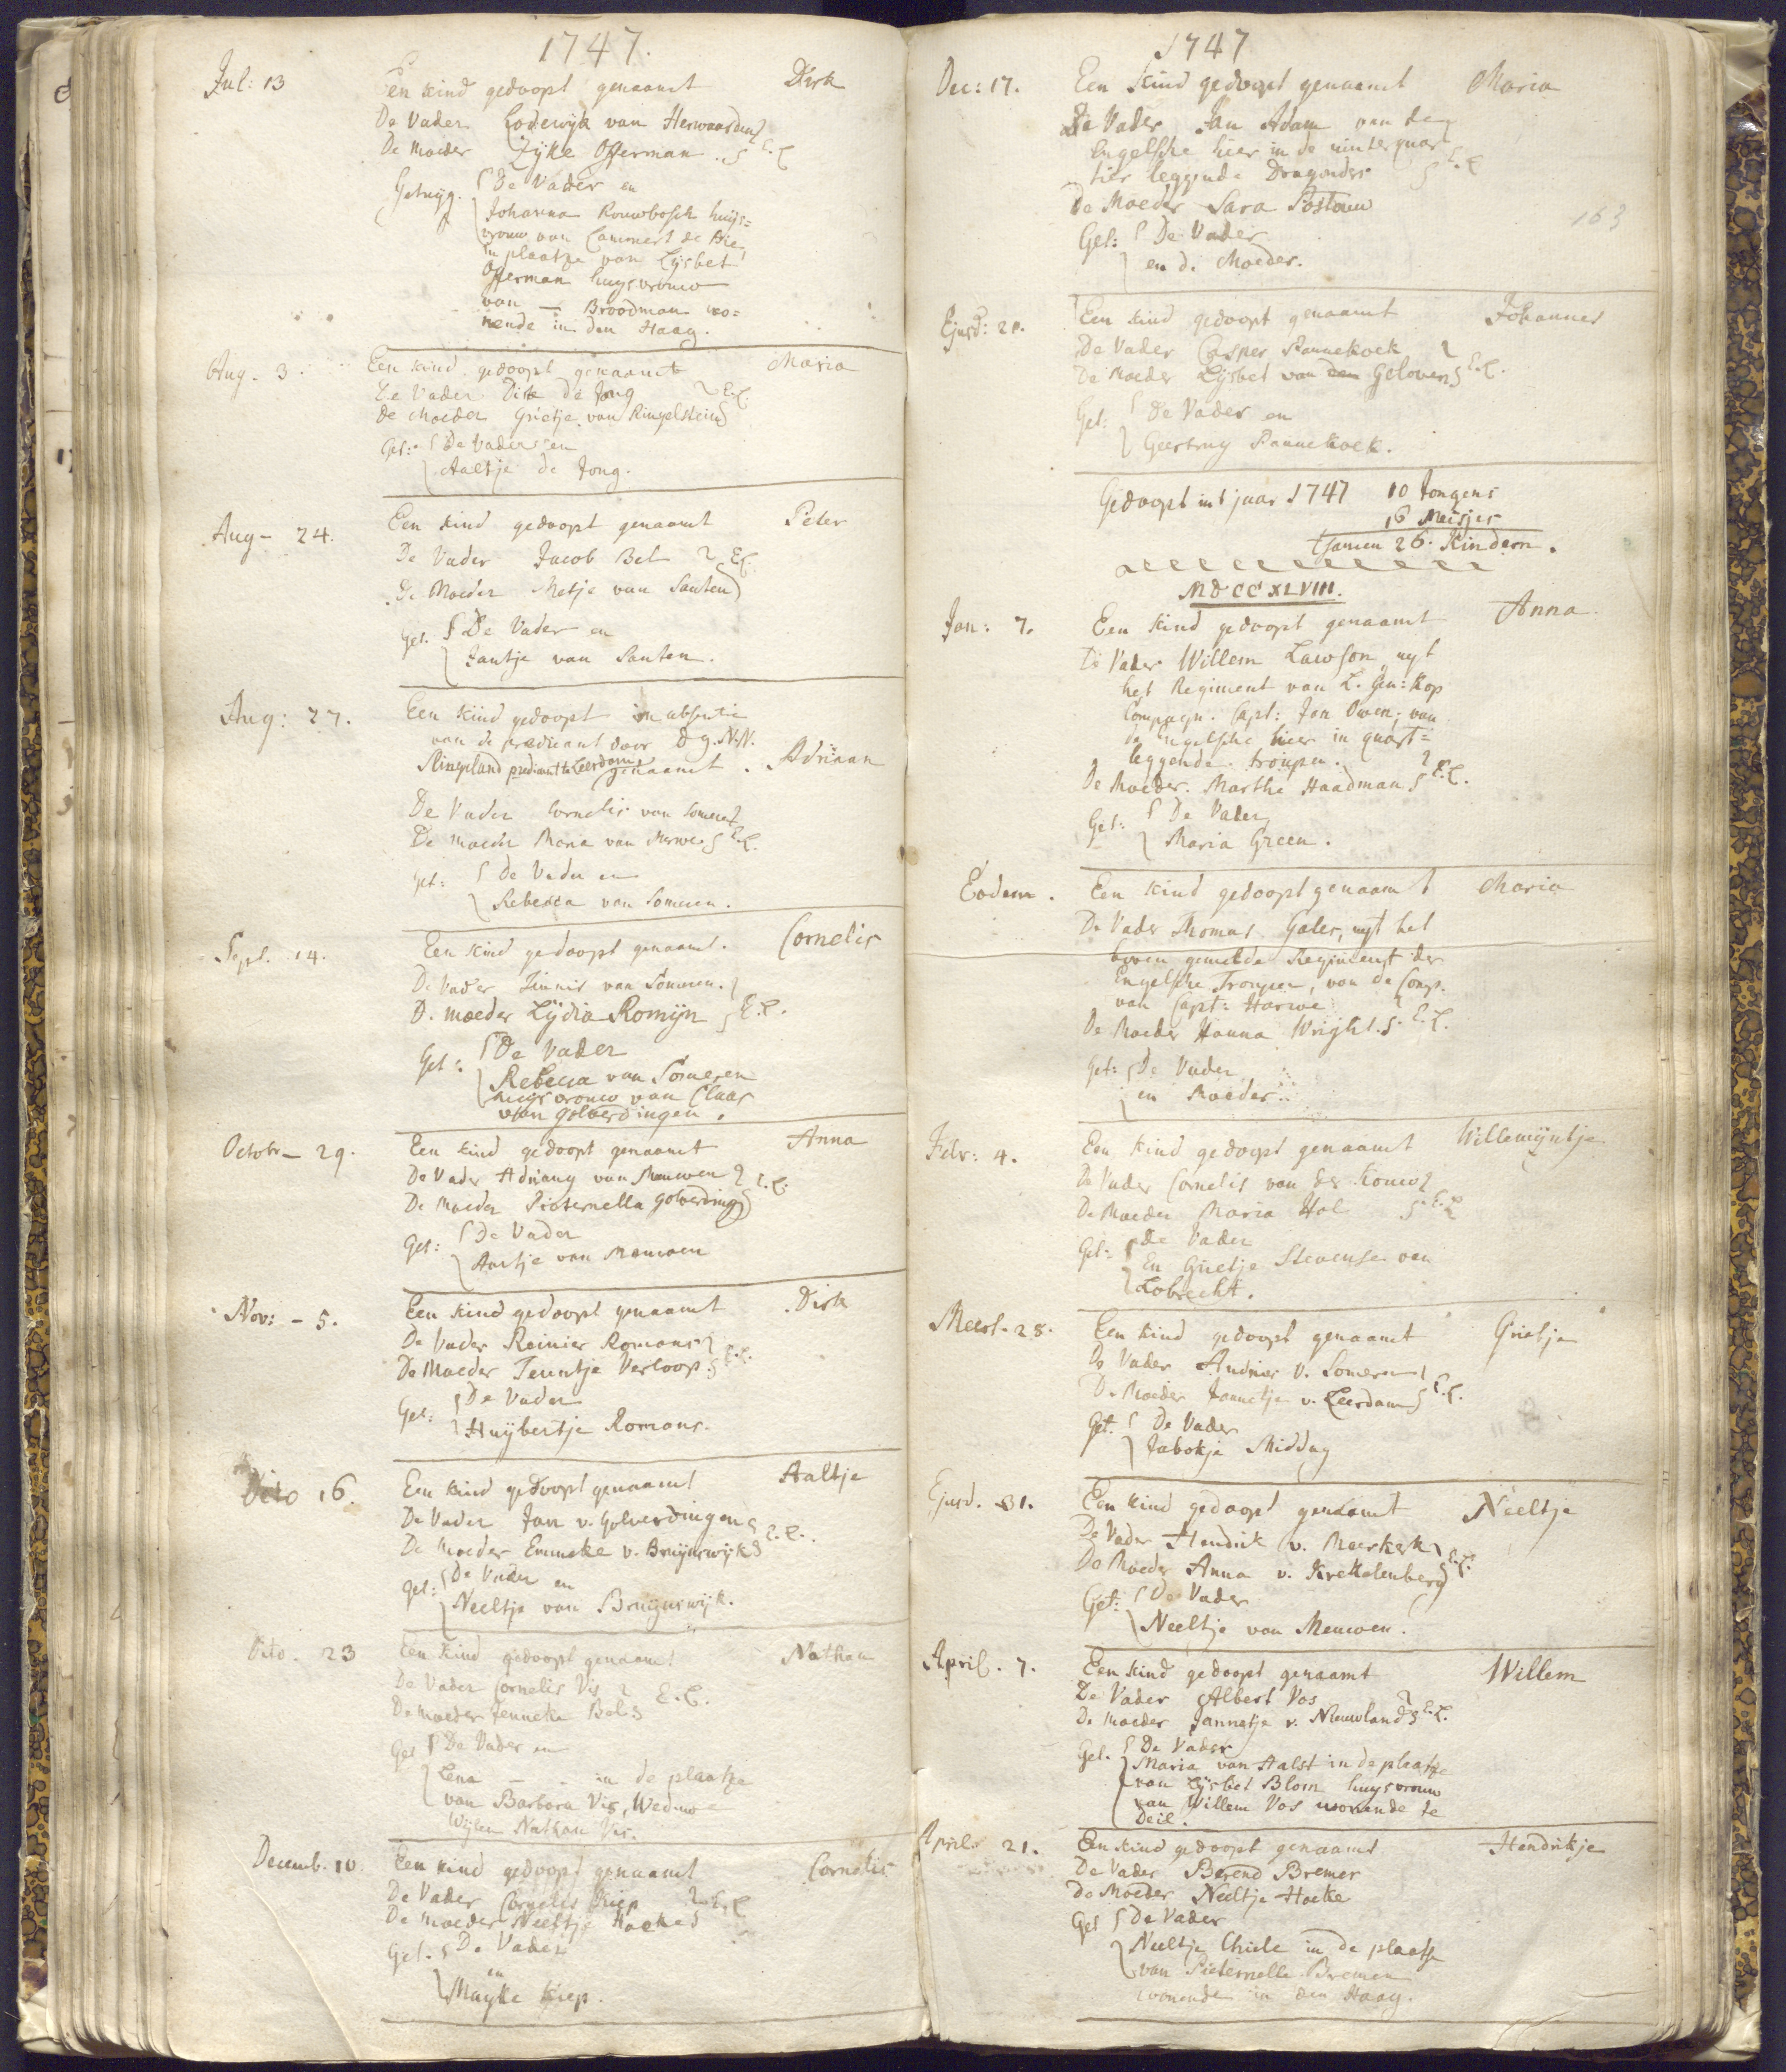 1747.
Jul: 13 Een kind gedoopt genaamt Dirk
De Vader Lodewijk van Herwaarden
De Moeder Zijke Offerman. E.L.
Getuyg. De Vader en
Johanna Rouwbosch huijs=
vrouw van Lammert de Bie
in plaatze van Lijsbet
Offerman huysvrouw
van — Broodman wo=
nende in den Haag.
Aug. 3. Een kind gedoopt genaamt Maria
De Vader Dirk de Jong E.L.
de Moeder Grietje van Ringelstein
Get: De Vader en
Aaltje de Jong.
Aug - 24. Een kind gedoopt genaamt Peter
De Vader Jacob Bel E.L.
De Moeder Metje van Santen
Get. De Vader en
Jantje van Santen.
Aug: 27. Een kind gedoopt in absentie
van de predicant door d g. N.N.
predicant te Leerdam genaamt. Adriaan
De Vader Cornelis van Someren
De moeder Maria van Merwe E.L.
Get: De Vader en
Rebecca van Someren.
Sept. 14. Een kind gedoopt genaamt. Cornelis
De Vader Teunis van Someren.
D. moeder Lydia Romijn E.L.
Get: De Vader
Rebecca van Someren
huysvrouw van Claas
van Golverdingen.
Octobr - 29. Een kind gedoopt genaamt Anna
De Vader Adriaan van Meuwen E.L.
De Moeder Pieternella Golverding
Get: De Vader
Aartje van Meuwen
Nov: - 5. Een kind gedoopt genaamt Dirk
De Vader Reinier Romans
De Moeder Teuntje Verloop. E.L.
Get: De Vader
Huijbertje Romans.
Dito 16. Een kind gedoopt genaamt Aaltje
De Vader Jan v. Golverdingen
De Moeder Emmeke v. Bruijnswijk E.L.
Get: De Vader en
Neeltje van Bruijnswijk.
Dito. 23 Een kind gedoopt genaamt Nathan
De Vader Cornelis Vis E.L.
De Moeder Jenneke Bel
Get De Vader en
Lena — - in de plaatze
van Barbara Vis, Weduwe
Wijlen Nathan Vis.
Decemb. 10. Een kind gedoopt genaamt Cornelis
De Vader Cornelis Kiep E.L.
De moeder Neeltje Hoeke
Get. De Vader
en
Mayke Kiep.
1747
163
Dec: 17. Een kind gedoopt genaamt Maria
De Vader Jan Adam van de
Engelsche hier in de winterquar
tier leggende Dragonder E.L.
De Moeder Sara Postouw
Get: De Vader
en de Moeder.
Ejusd: 21. Een kind gedoopt genaamt Johannes
De Vader Casper Pannekoek
De Moeder Lijsbet van Geloven E.L.
Get: De Vader en
Geertruy Pannekoek.
Gedoopt in 't jaar 1747 10 Jongens
16 Meisjes
tsamen 26. Kindern.
MDCCXLVIII.
Jan: 7. Een kind gedoopt genaamt Anna
De Vader Willem Lawson uyt
het Regiment van L. Gen: Kop
Compagn. Capt: Jon Owen; van
de Engelsche hier in quart=
leggende troupen.
De Moeder. Marthe Haadman E.L.
Get: De Vader
Maria Green.
Eodem. Een kind gedoopt genaamt Maria
De Vader Thomas Gales, uyt het
boven gemelde Regiment der
Engelsche Troupen, van de Comp.
van Capt: Harwe
De Moeder Hanna Wright. E.L.
Get: De Vader
en Moeder.
Febr: 4. Een kind gedoopt genaamt Willemijntje
De Vader Cornelis van der Kouw
De Moeder Maria Hol E.L.
Get: De Vader
En Grietje Stevense van
Lobrecht.
Meert. 28. Een kind gedoopt genaamt Grietje
De Vader Andries v. Someren
De Moeder Jannetje v. Leerdam E.L.
Get. De Vader
Jabokje Middag
Ejusd. 31. Een kind gedoopt genaamt Neeltje
De Vader Hendrik v. Meerkerk
De Moeder Anna v. Krekelenberg E.L.
Get: De Vader
Neeltje van Meuwen.
April. 7. Een kind gedoopt genaamt Willem
De Vader Albert Vos
De Moeder Jannetje v. Nieuwland E.L.
Get. De Vader
Maria van Halst in de plaatze
van Lijsbet Blom huysvrouw
van Willem Vos wonende te
Deil.
April. 21. Een kind gedoopt genaamt Hendrikje
De Vader Berend Bremer
De Moeder Neeltje Hoeke
Get De Vader
Neeltje Chiele in de plaatse
van Pieternelle Bremer
wonende in den Haag.